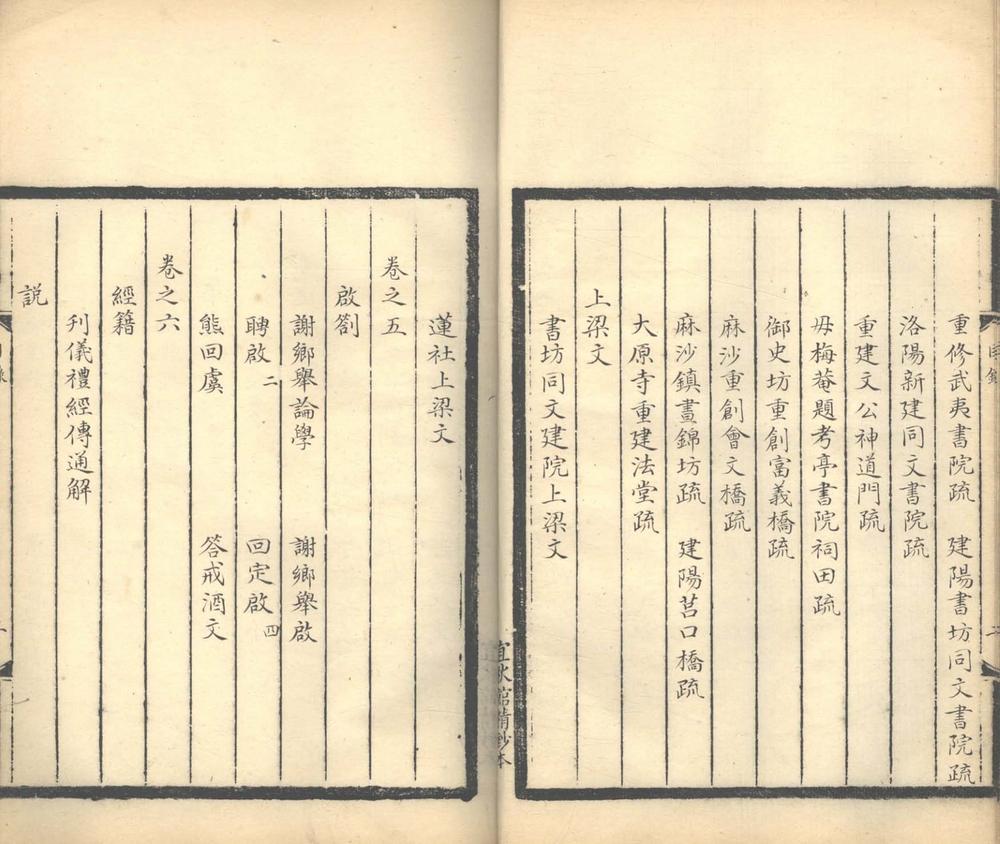 重修武夷書院疏　建陽書坊同文書院疏
洛陽新建同文書院疏
重建文公神道門疏
毋梅菴題考亭書院祠田疏
御史坊重創富義橋疏
麻沙重創會文橋疏
麻沙鎮晝錦坊疏　建陽莒口橋疏
大原寺重建法堂疏
上梁文
書坊同文建院上梁文
宜秋館精鈔本
蓮社上梁文
卷之五
啟劄
謝鄉舉論學　謝鄉舉啟
聘啟二　回定啟四
熊回虞　答戒酒文
卷之六
經籍
刋儀禮經傳通解
説